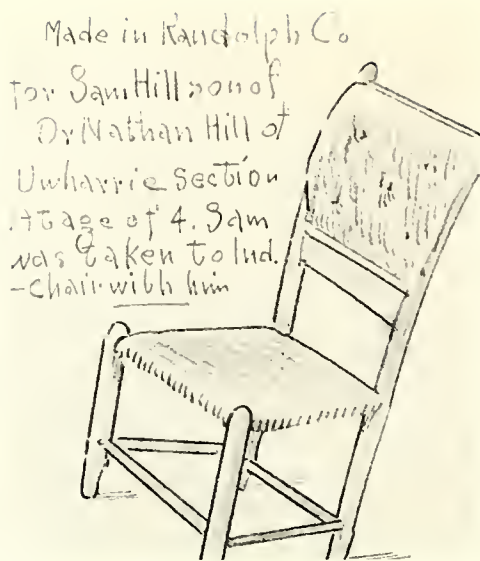 Made in Randolph Co
for Sam Hill son of
Dr Nathan Hill of
Uwharrie Section
At age of 4. Sam
was taken to Ind.
-chair with him